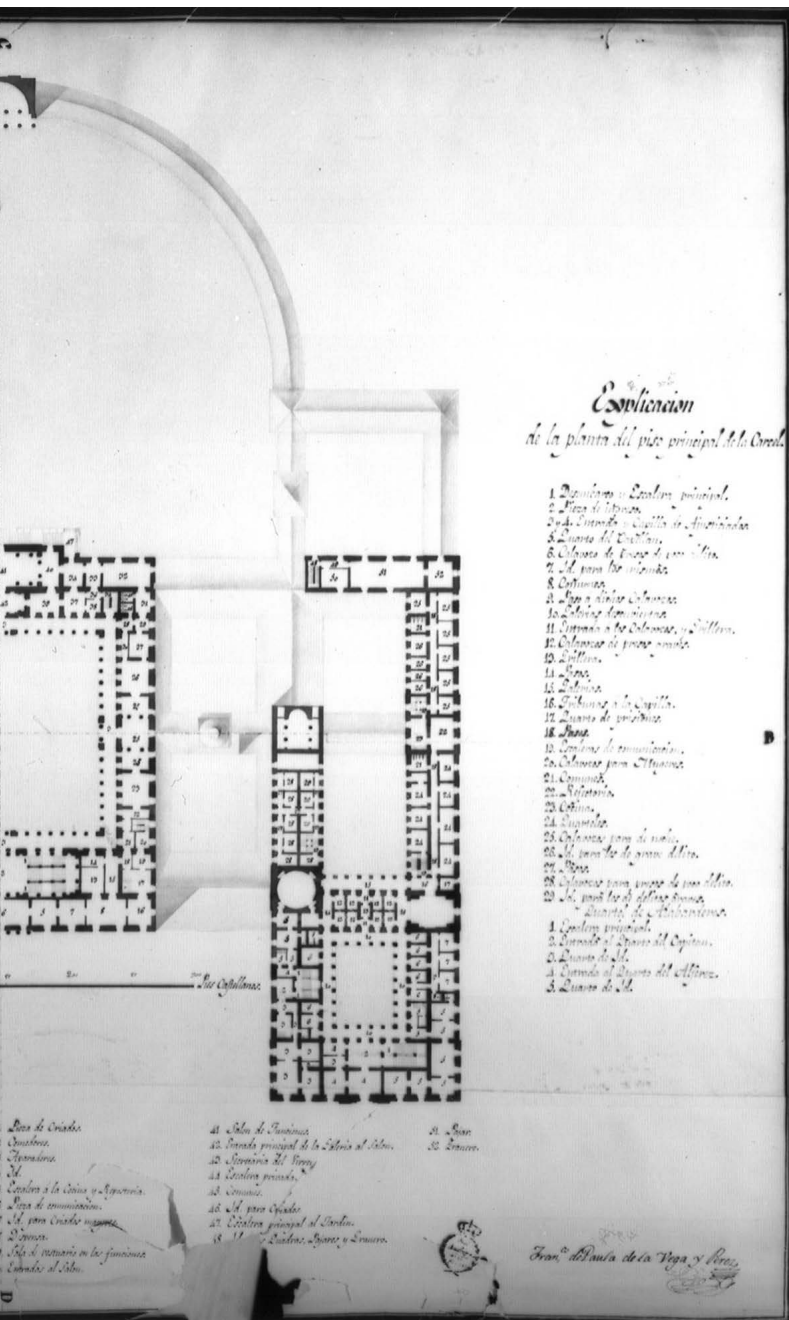 C
Explicacion
de la planta del piso principal de la Carcel.
1. Desembarco y Escalera principal.
2. Pieza de ingreso.
3 y 4. Entrada y Capilla de Ajusticiados
5. Quarto del Capellan.
6. Calavozo de presos de poco delito.
7. Id. para los mismos.
8. Comunes.
9. Paso a dichos Calavozos.
10. Galerias descubiertas.
11. Entrada a los Calavozos, y Grillera.
12. Calavozos de presos graves.
13. Grillera.
14. Pasos.
15. Galerias.
16. Tribunas a la Capilla.
17. Quarto de prisiones.
18. Pasos.
19. Escaleras de comunicacion.
20. Calavozos para Mugeres.
21. Comunes.
22. Refectorio.
23. Cocina.
24. Quarteles.
25. Calavozos para
26. Id. para los de grave delito.
27. Pasos.
28. Calavozos para presos de poco delito.
29. Id. para los de delitos graves.
Quartel de Alabarderos.
1. Escalera principal.
2. Entrada al Quarto del Capitan.
3. Quarto de Id.
4. Entrada al Quarto del Alferez.
5. Quarto de Id.
B
Pies Castellanos.
Pieza de Criados.
Comedores.
Aparadores.
Id.
Escalera à la Cocina y Reposteria.
Pieza de comunicacion.
Id. para Criados mayores.
Dispensa.
Sala de vestuario en las funciones
Entradas al Salon.
41. Salon de Funciones.
42. Entrada principal de la Galeria al Salon.
43. Secretaria del Virrey
44. Escalera privada.
45. Comunes.
46. Id. para Criados
47. Escalera principal al Jardin.
48. Id. Quadras, Pajares y Granero.
51. Pajar.
52. Granero.
Fran.co de Paula de la Vega y Perez
D